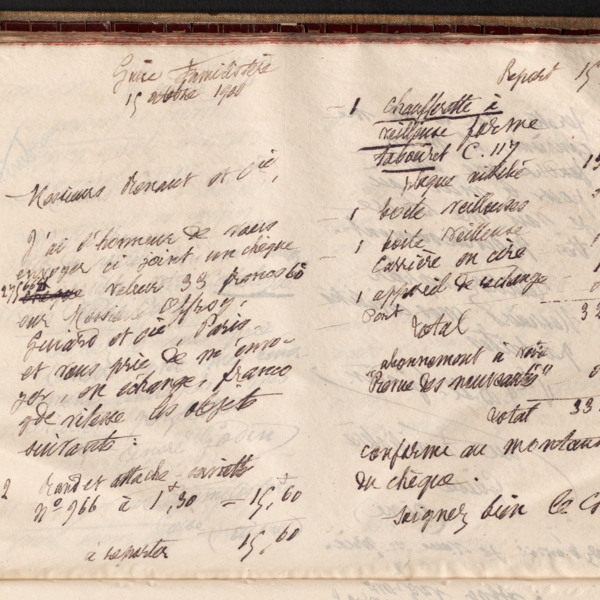 Guise Familistère
15 octobre 1900
Messieurs Renaut et Cie,
J'ai l'honneur de vous
envoyer ci joint un chèque
valeur 33 francs 60
sur Messieurs Offroy,
Guiard et Cie Paris
et vous prie de m'envo-
yer, en échange, franco
gde vitesse les objets
suivants :
2
Rond et attache-serviette
N° 966 à 1f,30 = 15f,60
à reporter 15,60
Report 15
- 1 chaufferette à
veilleuse forme
tabouret C. 117
plaque nickelée
- 1 boite veilleuses
- 1 boite veilleuse
Carrière en cire
1 appareil de rechange
Port
Total
abonnement à votre
"Revue des nouveautés"
Total 33.
conforme au montant
du chèque.
Soignez bien